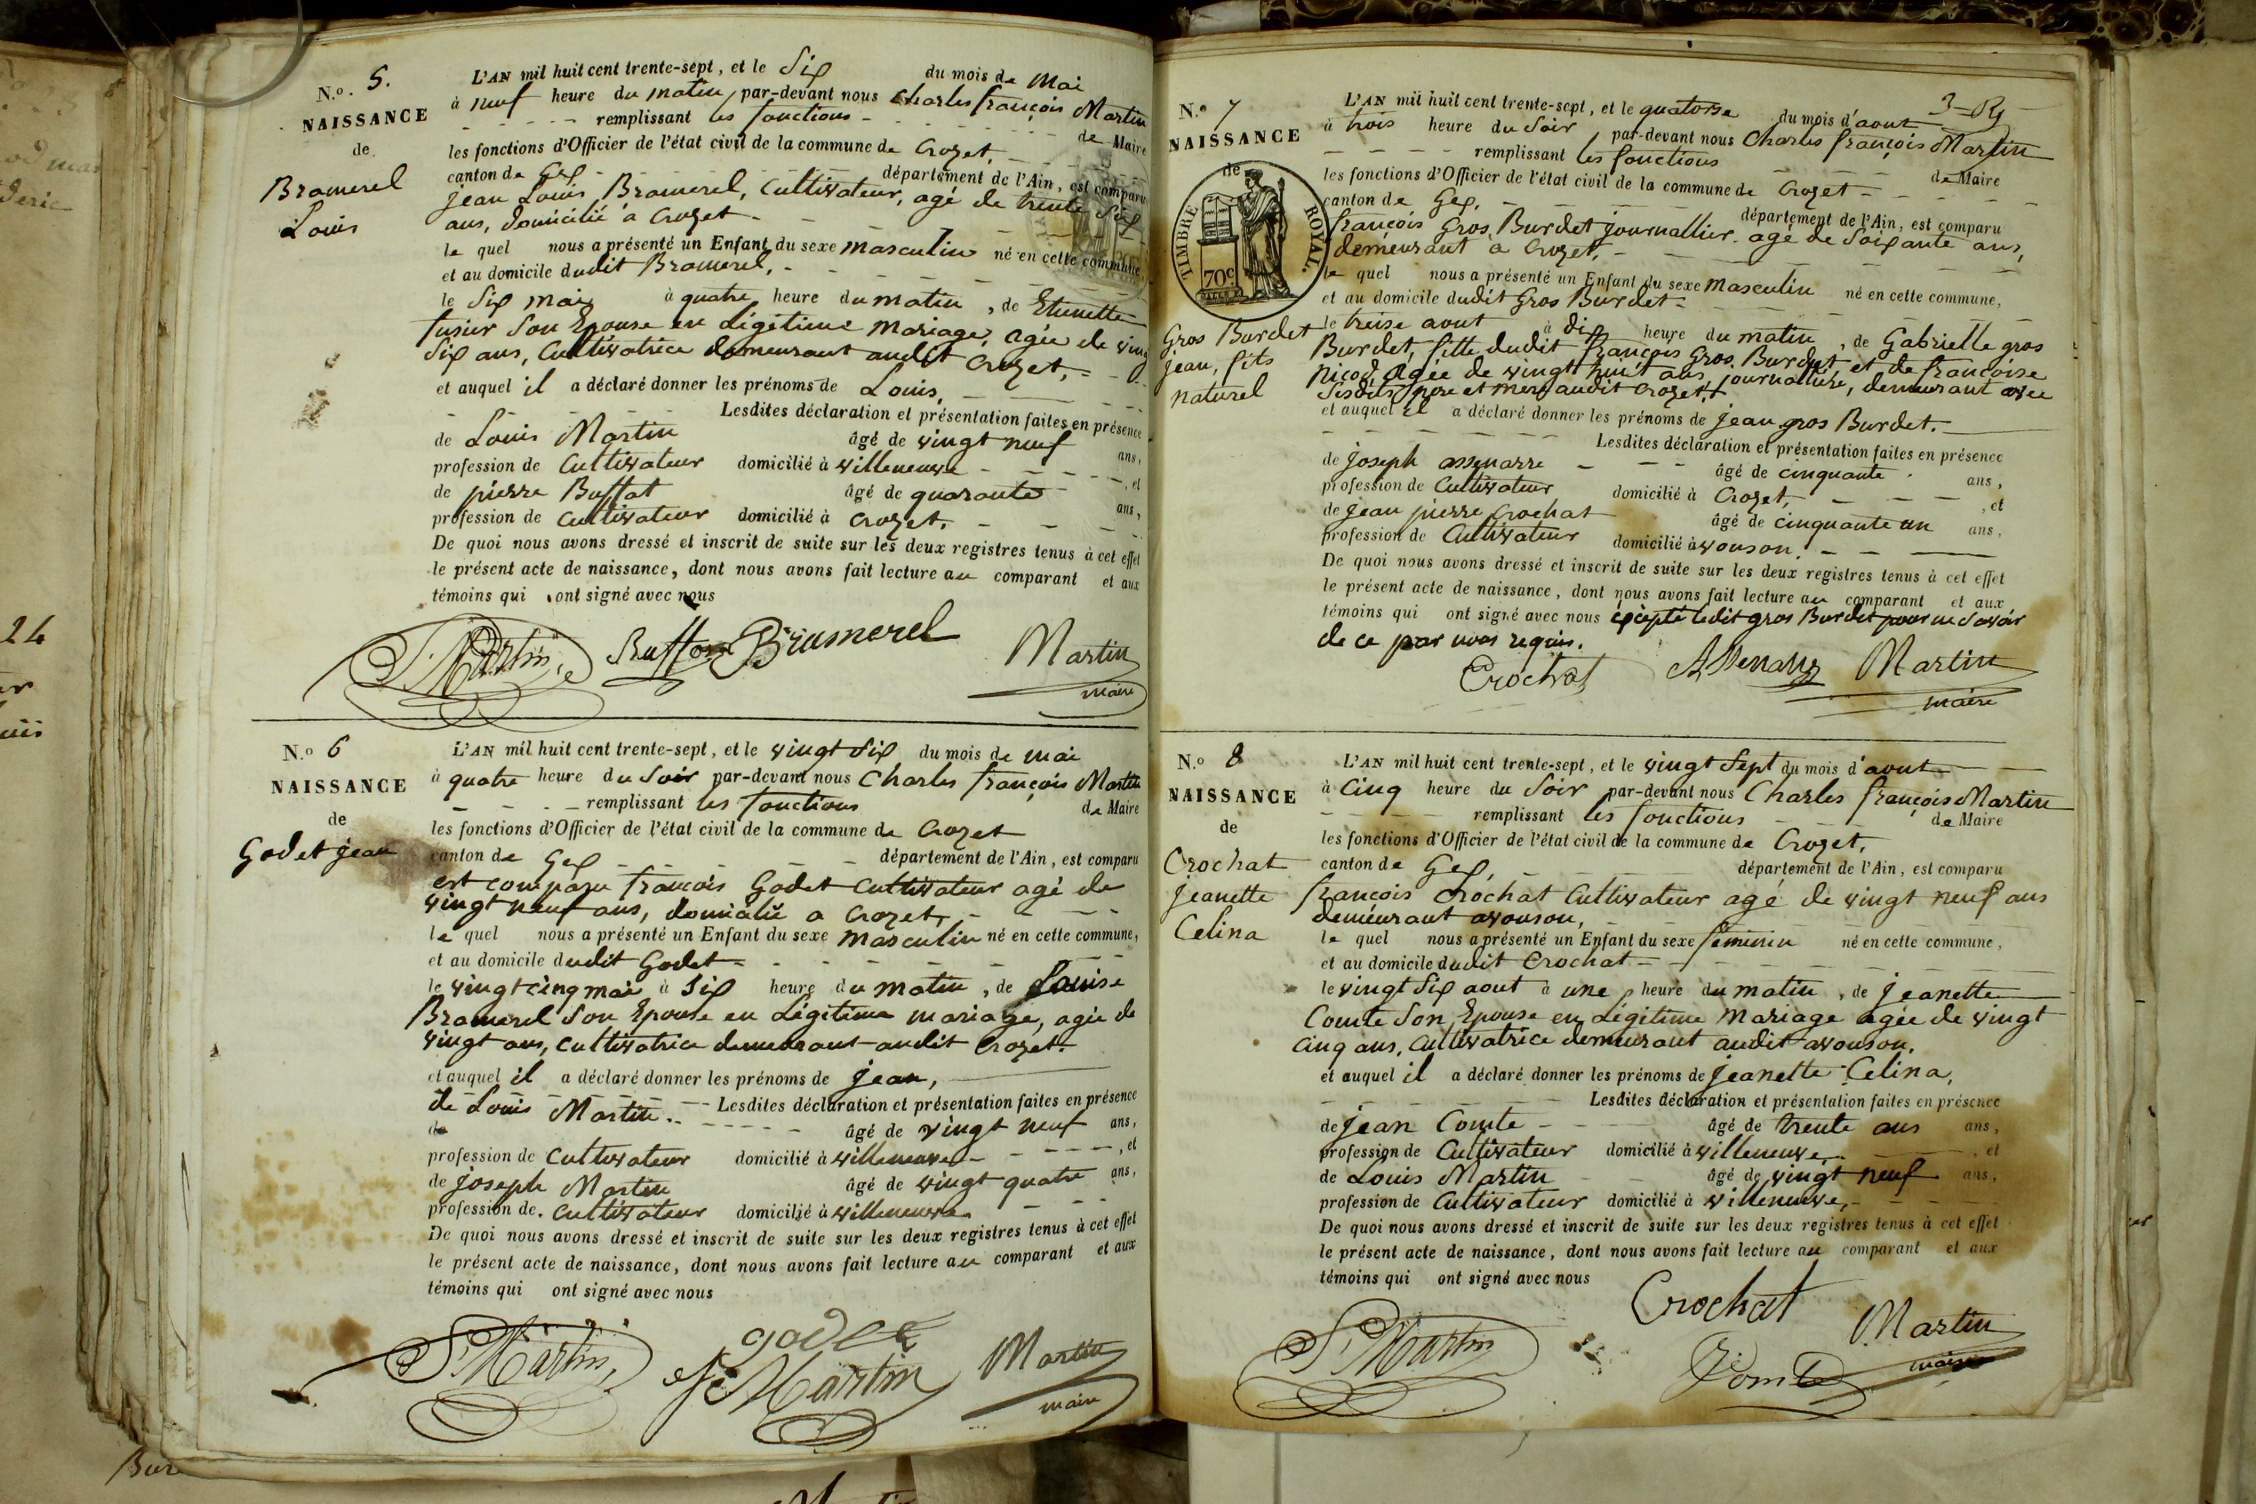 N.o 5.
NAISSANCE
de
Bramerel
Louis
L'AN mil huit cent trente-sept, et le Six du mois de Mai
à neuf heure du matin par-devant nous Charles françois Martin
remplissant les fonctions de Maire
les fonctions d'Officier de l'état civil de la commune de Crozet,
canton de Gex département de l'Ain, est comparu
jean Louis Bramerel, Cultivateur, agé de trente Six
ans, domicilié a Crozet
le quel nous a présenté un Enfant du sexe masculin né en cette commune,
et au domicile dudit Bramerel,
le Six mai à quatre heure du matin, de Etiennette
fusier Son Epouse en Légitime Mariage, agée de vingt
Six ans, Cultivatrice demeurant audit Crozet,
et auquel il a déclaré donner les prénoms de Louis,
Lesdites déclaration et présentation faites en présence
de Louis Martin âgé de vingt neuf ans,
profession de Cultivateur domicilié à villeneuve, et
de pierre Buffat âgé de quarante ans,
profession de Cultivateur domicilié à Crozet.
De quoi nous avons dressé et inscrit de suite sur les deux registres tenus à cet effet
le présent acte de naissance, dont nous avons fait lecture au comparant et aux
témoins qui ont signé avec nous
Martin Bramerel Martin
maire
N.o 6
NAISSANCE
de
Godet jean
L'AN mil huit cent trente-sept, et le vingt Six du mois de mai
à quatre heure du Soir par-devant nous Charles françois Martin
remplissant les fonctions de Maire
les fonctions d'Officier de l'état civil de la commune de Crozet
canton de Gex département de l'Ain, est comparu
est comparu francois Godet Cultivateur agé de
vingt neuf ans, domicilié a Crozet,
le quel nous a présenté un Enfant du sexe masculin né en cette commune,
et au domicile dudit Godet
le vingt cinq mai à Six heure du matin, de Louise
Bramerel Son Epouse en Légitime mariage, agée de
vingt ans, cultivatrice demeurant audit Crozet.
et auquel il a déclaré donner les prénoms de jean,
de Louis Martin. Lesdites déclaration et présentation faites en présence
de âgé de vingt neuf ans,
profession de Cultivateur domicilié à villeneuve, et
de joseph Martin âgé de vingt quatre ans,
profession de Cultivateur domicilié à villeneuve
De quoi nous avons dressé et inscrit de suite sur les deux registres tenus à cet effet
le présent acte de naissance, dont nous avons fait lecture au comparant et aux
témoins qui ont signé avec nous
godet
Martin Martin Martin
maire
3
N.o 7
NAISSANCE
de
TIMBRE ROYAL.
70c
Gros Burdet
jean, fils
naturel
L'AN mil huit cent trente-sept, et le quatorse du mois d'aout
à trois heure du Soir par-devant nous Charles françois Martin
remplissant les fonctions de Maire
les fonctions d'Officier de l'état civil de la commune de Crozet
canton de Gex, département de l'Ain, est comparu
françois Gros Burdet journallier agé de Soixante ans,
demeurant a Crozet,
le quel nous a présenté un Enfant du sexe masculin né en cette commune,
et au domicile dudit Gros Burdet
le treise aout à dix heure du matin, de Gabrielle gros
Burdet, fille dudit françois Gros Burdet et de francoise
nicod, agée de vingt huit ans, journallière, demeurant avec
Sesdits père et mere audit Crozet,
et auquel il a déclaré donner les prénoms de jean gros Burdet.
Lesdites déclaration et présentation faites en présence
de joseph assenarre âgé de cinquante ans,
profession de Cultivateur domicilié à Crozet, et
de jean pierre Crochat âgé de cinquante un ans,
profession de Cultivateur domicilié à vouson.
De quoi nous avons dressé et inscrit de suite sur les deux registres tenus à cet effet
le présent acte de naissance, dont nous avons fait lecture au comparant et aux
témoins qui ont signé avec nous excepté ledit gros Burdet pour ne Savoir
de ce par nous requis.
Crochat Martin
maire
N.o 8
NAISSANCE
de
Crochat
jeanette
Celina
L'AN mil huit cent trente-sept, et le vingt Sept du mois d'aout
à Cinq heure du Soir par-devant nous Charles françois Martin
remplissant les fonctions de Maire
les fonctions d'Officier de l'état civil de la commune de Crozet,
canton de Gex, département de l'Ain, est comparu
françois Crochat Cultivateur agé de vingt neuf ans
demeurant avouson,
le quel nous a présenté un Enfant du sexe féminin né en cette commune,
et au domicile dudit Crochat
le vingt Six aout à une heure du matin, de jeanette
Comte Son Epouse en Légitime Mariage agée de vingt
cinq ans, Cultivatrice demeurant audit avouson.
et auquel il a déclaré donner les prénoms de jeanette Celina,
Lesdites déclaration et présentation faites en présence
de jean Comte âgé de trente ans ans,
profession de Cultivateur domicilié à villeneuve, et
de Louis Martin âgé de vingt neuf ans,
profession de Cultivateur domicilié à villeneuve,
De quoi nous avons dressé et inscrit de suite sur les deux registres tenus à cet effet
le présent acte de naissance, dont nous avons fait lecture au comparant et aux
témoins qui ont signé avec nous
Crochat
Martin Comte Martin
maire